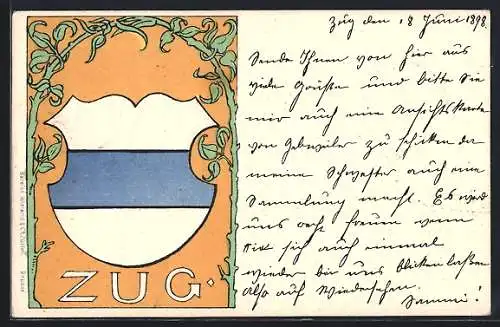 Zug den 18 Juni 1898.
Sende Ihnen von hier aus
viele Grüße und bitte Sie
mir auch eine Ansichtskarte
von Gebweiler zu schicken da
meine Schwester auch eine
Sammlung macht. Es wird
uns recht freuen wenn
Sie sich auch einmal
wieder bei uns blicken laßen
Also auf Wiedersehen.
ZUG.